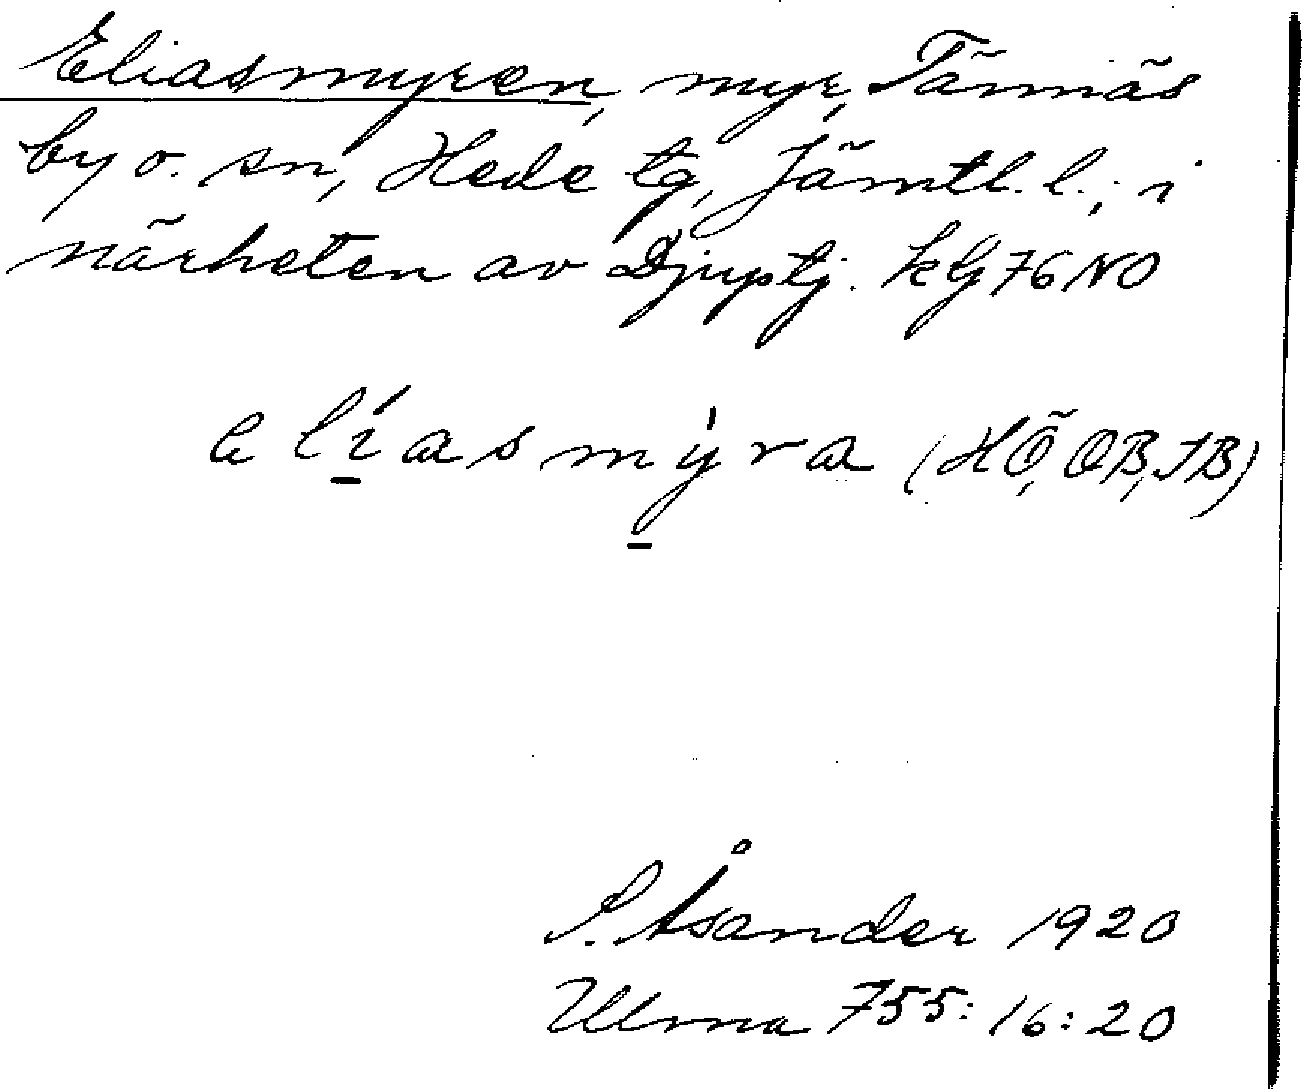 Eliasmyren, myr, Tännäs
by o. sn, Hede tg, Jämtl. l.; i
närheten av Djuptj. kG76NO
elíasmýra (HÖ, OB, JB)
S. Åsander 1920
Ulma 755:16:20